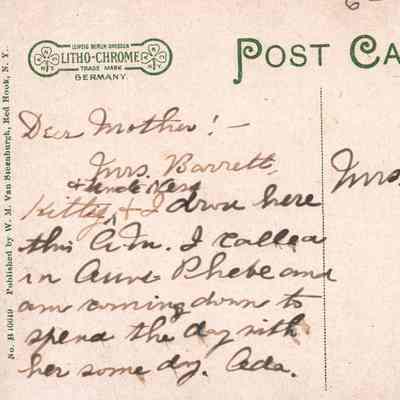 LEIPZIG BERLIN DRESDEN
LITHO-CHROME
TRADE MARK
GERMANY.
POST CA
No. B 10049 Published by W. M. Van Steenburgh, Red Hook, N. Y.
Dear Mother! —
Mrs. Barrett,
+ Uncle
Kitty + I drove here
this A.M. I called
in Aunt Phebe and
am coming down to
spend the day with
her some day. Ada.
Mrs.